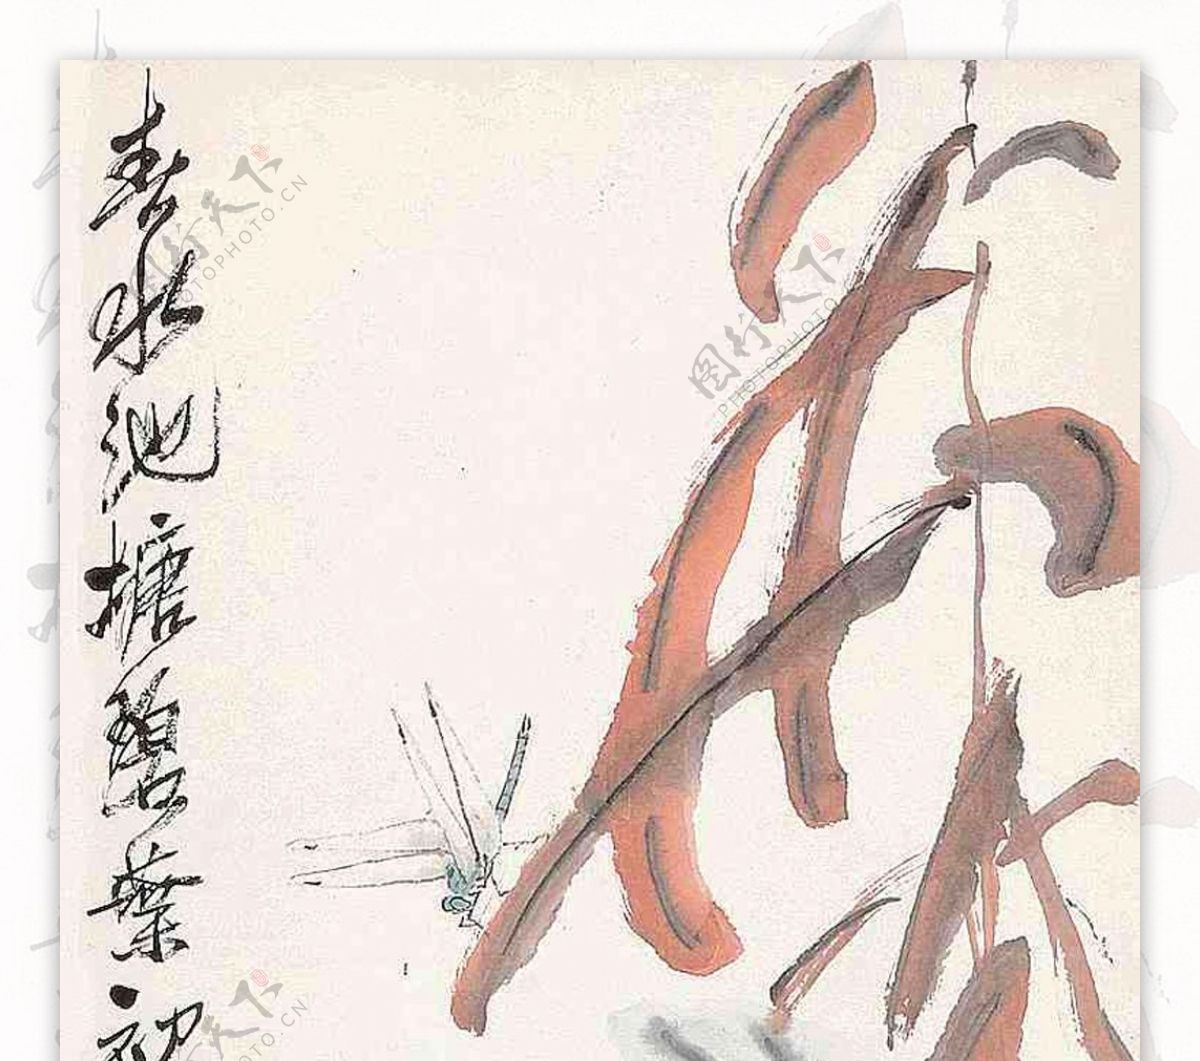 春水池塘碧葉初
图行天下
PHOTOPHOTO.CN
图行天下
PHOTOPHOTO.CN
图行天下
PHOTOPHOTO.CN